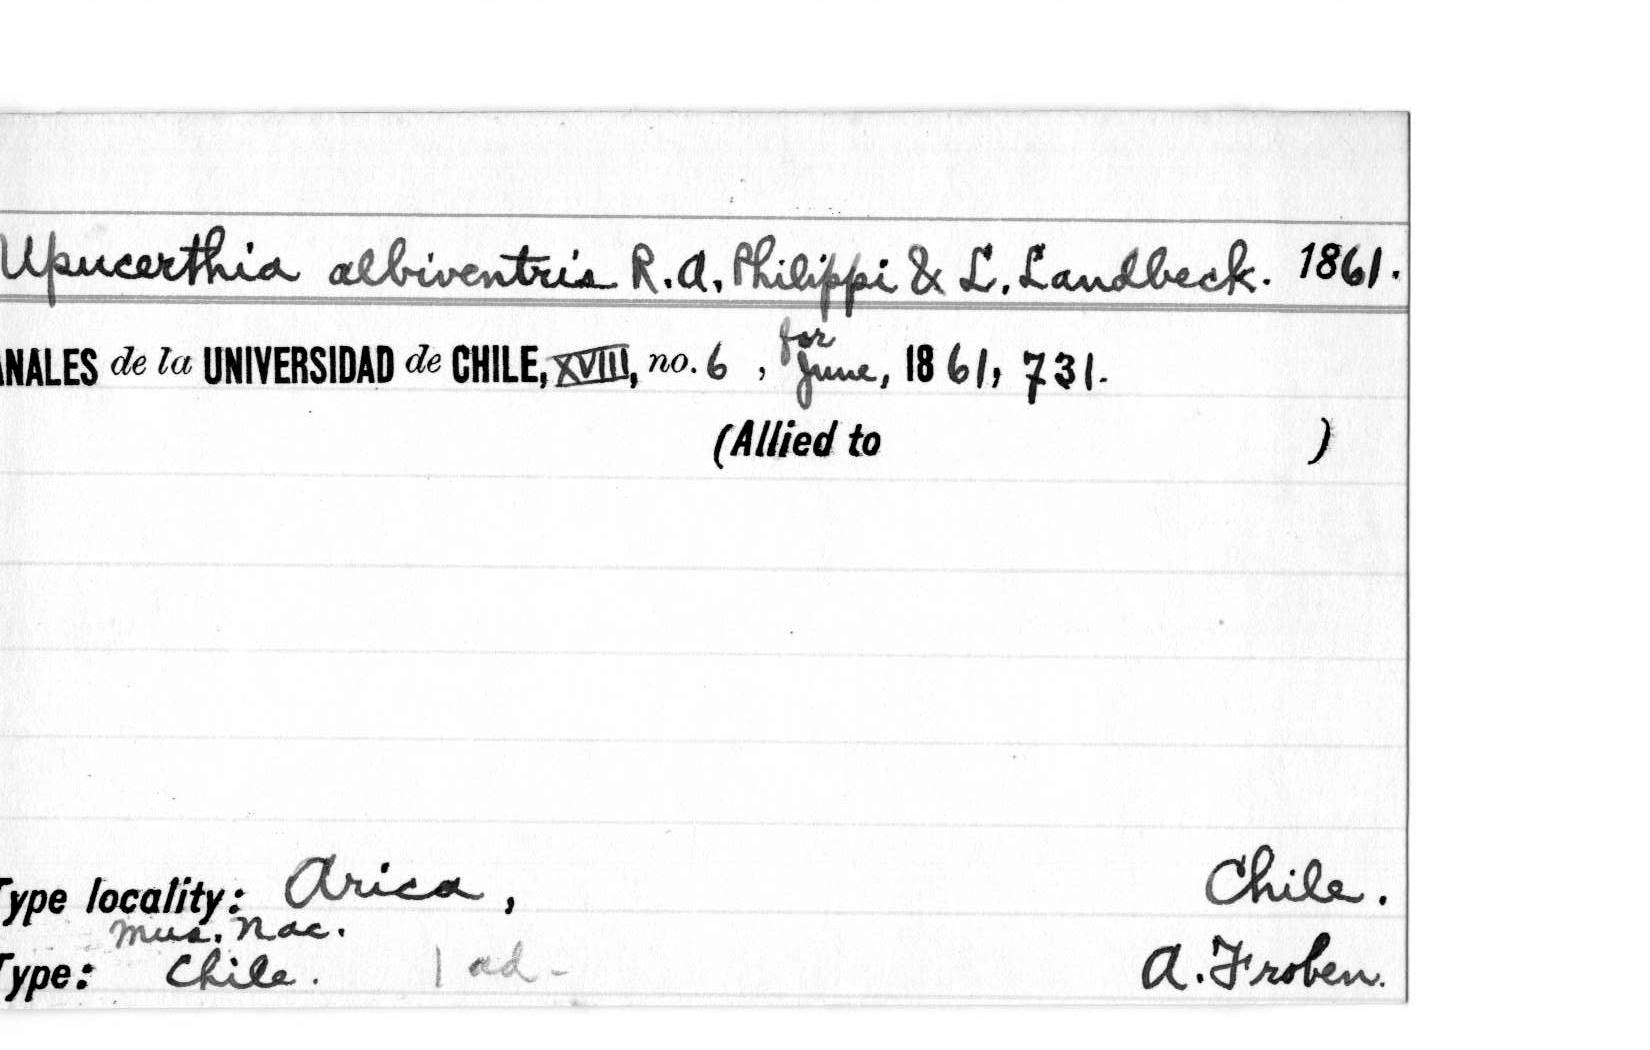 Upucerthia albiventris R.A. Philippi & L. Landbeck. 1861.
NALES de la UNIVERSIDAD de CHILE, XVIII, no. 6 , for June, 1861, 731.
(Allied to )
Type locality: Arica, Chile.
Mus. Nac.
Type: Chile. 1 ad- A. Froben.